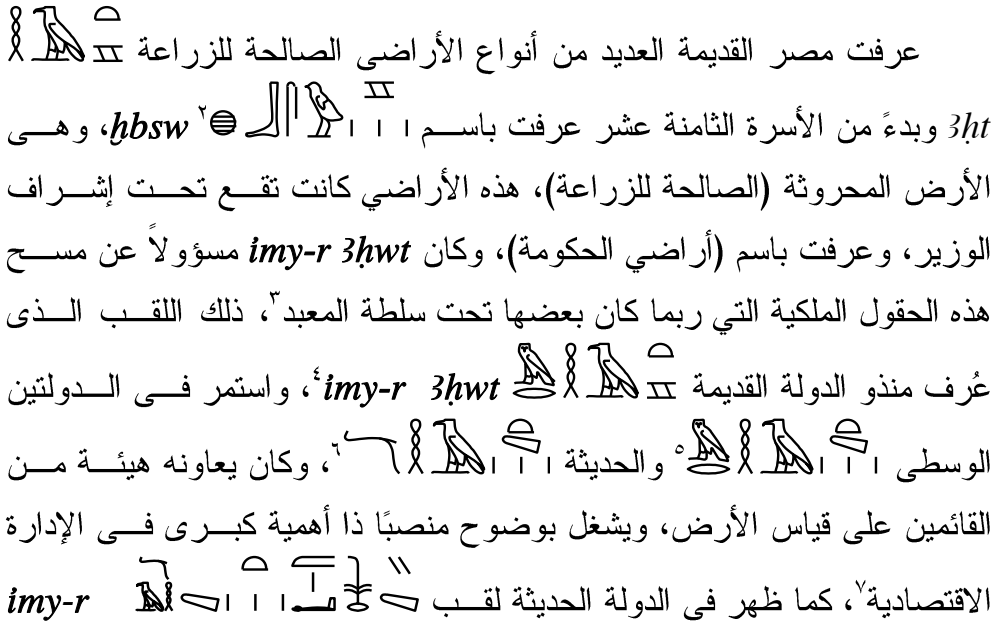 عرفت مصر القديمة العديد من أنواع الأراضى الصالحة للزراعة
3ḥt وبدءً من الأسرة الثامنة عشر عرفت باسم ٢ ḫbsw، وهى
الأرض المحروثة (الصالحة للزراعة)، هذه الأراضي كانت تقع تحت إشراف
الوزير، وعرفت باسم (أراضي الحكومة)، وكان imy-r 3ḥwt مسؤولاً عن مسح
هذه الحقول الملكية التي ربما كان بعضها تحت سلطة المعبد٣، ذلك اللقب الذى
عُرف منذو الدولة القديمة imy-r 3ḥwt٤، واستمر فى الدولتين
الوسطى ٥ والحديثة ٦، وكان يعاونه هيئة من
القائمين على قياس الأرض، ويشغل بوضوح منصبًا ذا أهمية كبرى فى الإدارة
الاقتصادية٧، كما ظهر فى الدولة الحديثة لقب imy-r